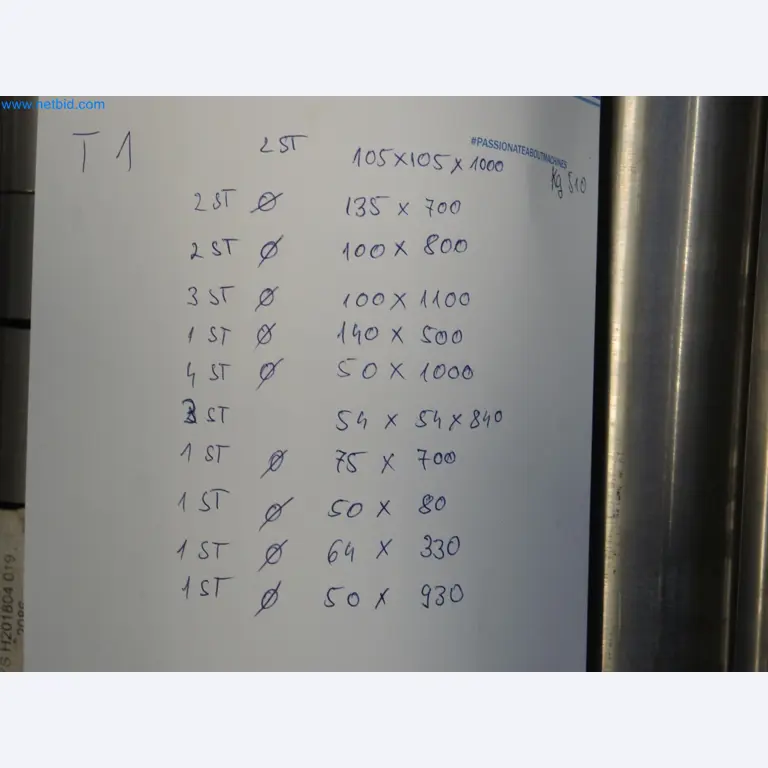 www.netbid.com
#PASSIONATEABOUTMACHINES
T 1 2 ST 105×105×1000
Kg 510
2 ST Ø 135 × 700
2 ST Ø 100 × 800
3 ST Ø 100 × 1100
1 ST Ø 140 × 500
4 ST Ø 50 × 1000
3 ST 54 × 54 × 840
1 ST Ø 75 × 700
1 ST Ø 50 × 80
1 ST Ø 64 × 330
1 ST Ø 50 × 930
H201804 019